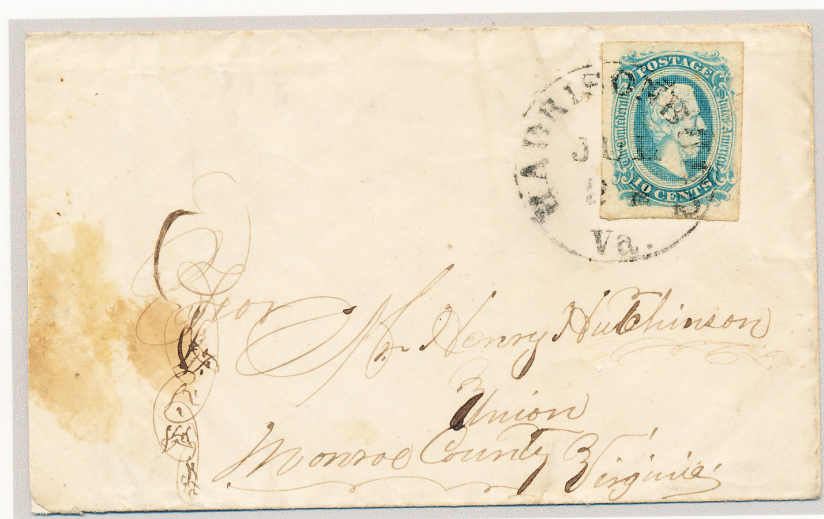 HARRISONBURG
JUL
Va.
POSTAGE
The Confederate States of America
10 CENTS
For Mr Henry Hutchinson
Union
Monroe County Virginia